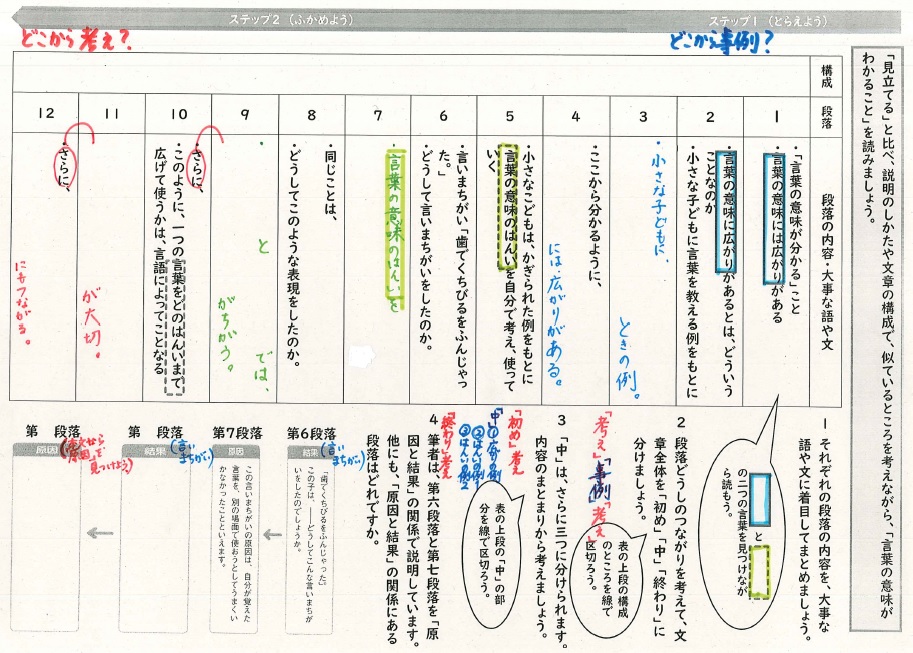 ステップ1（とらえよう）
ステップ2（ふかめよう）
どこから事例？
どこから考え？
「見立てる」と比べ、説明のしかたや文章の構成で、似ているところを考えながら、「言葉の意味が
わかること」を読みましょう。
構成
段落
段落の内容・大事な語や文
1
・「言葉の意味が分かる」こと
言葉の意味には広がりがある
2
・言葉の意味に広がりがあるとは、どういう
ことなのか
・小さな子どもに言葉を教える例をもとに
3
・小さな子どもに、
ときの例。
4
・ここから分かるように、
には、広がりがある。
5
・小さなこどもは、かぎられた例をもとに
言葉の意味のはんいを自分で考え、使って
いく
6
・言いまちがい「歯でくちびるをふんじゃっ
た。」
・どうして言いまちがいをしたのか。
7
・言葉の意味のはんいを
8
・同じことは、
・どうしてこのような表現をしたのか。
9
・
と
では、
がちがう。
10
・さらに、
・このように、一つの言葉をどのはんいまで
広げて使うかは、言語によってことなる
11
が大切。
12
・さらに、
にもつながる。
1 それぞれの段落の内容を、大事な
語や文に着目してまとめましょう。
と
の二つの言葉を見つけなが
ら読もう。
2 段落どうしのつながりを考えて、文
章全体を「初め」「中」「終わり」に
分けましょう。
「考え」「事例」「考え」
表の上段の構成
のところを線で
区切ろう。
3 「中」は、さらに三つに分けられます。
内容のまとまりから考えましょう。
「初め」考え
「中」①広がりの例
②はんいの例1
③はんいの例2
「終わり」考え
表の上段の「中」の部
分を線で区切ろう。
4 筆者は、第六段落と第七段落を「原
因と結果」の関係で説明しています。
他にも、「原因と結果」の関係にある
段落はどれですか。
第6段落
（言いまちがい）
結果
「歯でくちびるをふんじゃった」
この子は、――どうしてこんな言いまちが
いをしたのでしょうか。
第7段落
原因
この言いまちがいの原因は、自分が覚えた
言葉を、別の場面で使おうとしてうまくい
かなかったことといえます。
第　段落
（言いまちがい）
結果
第　段落
原因
見つけよう）